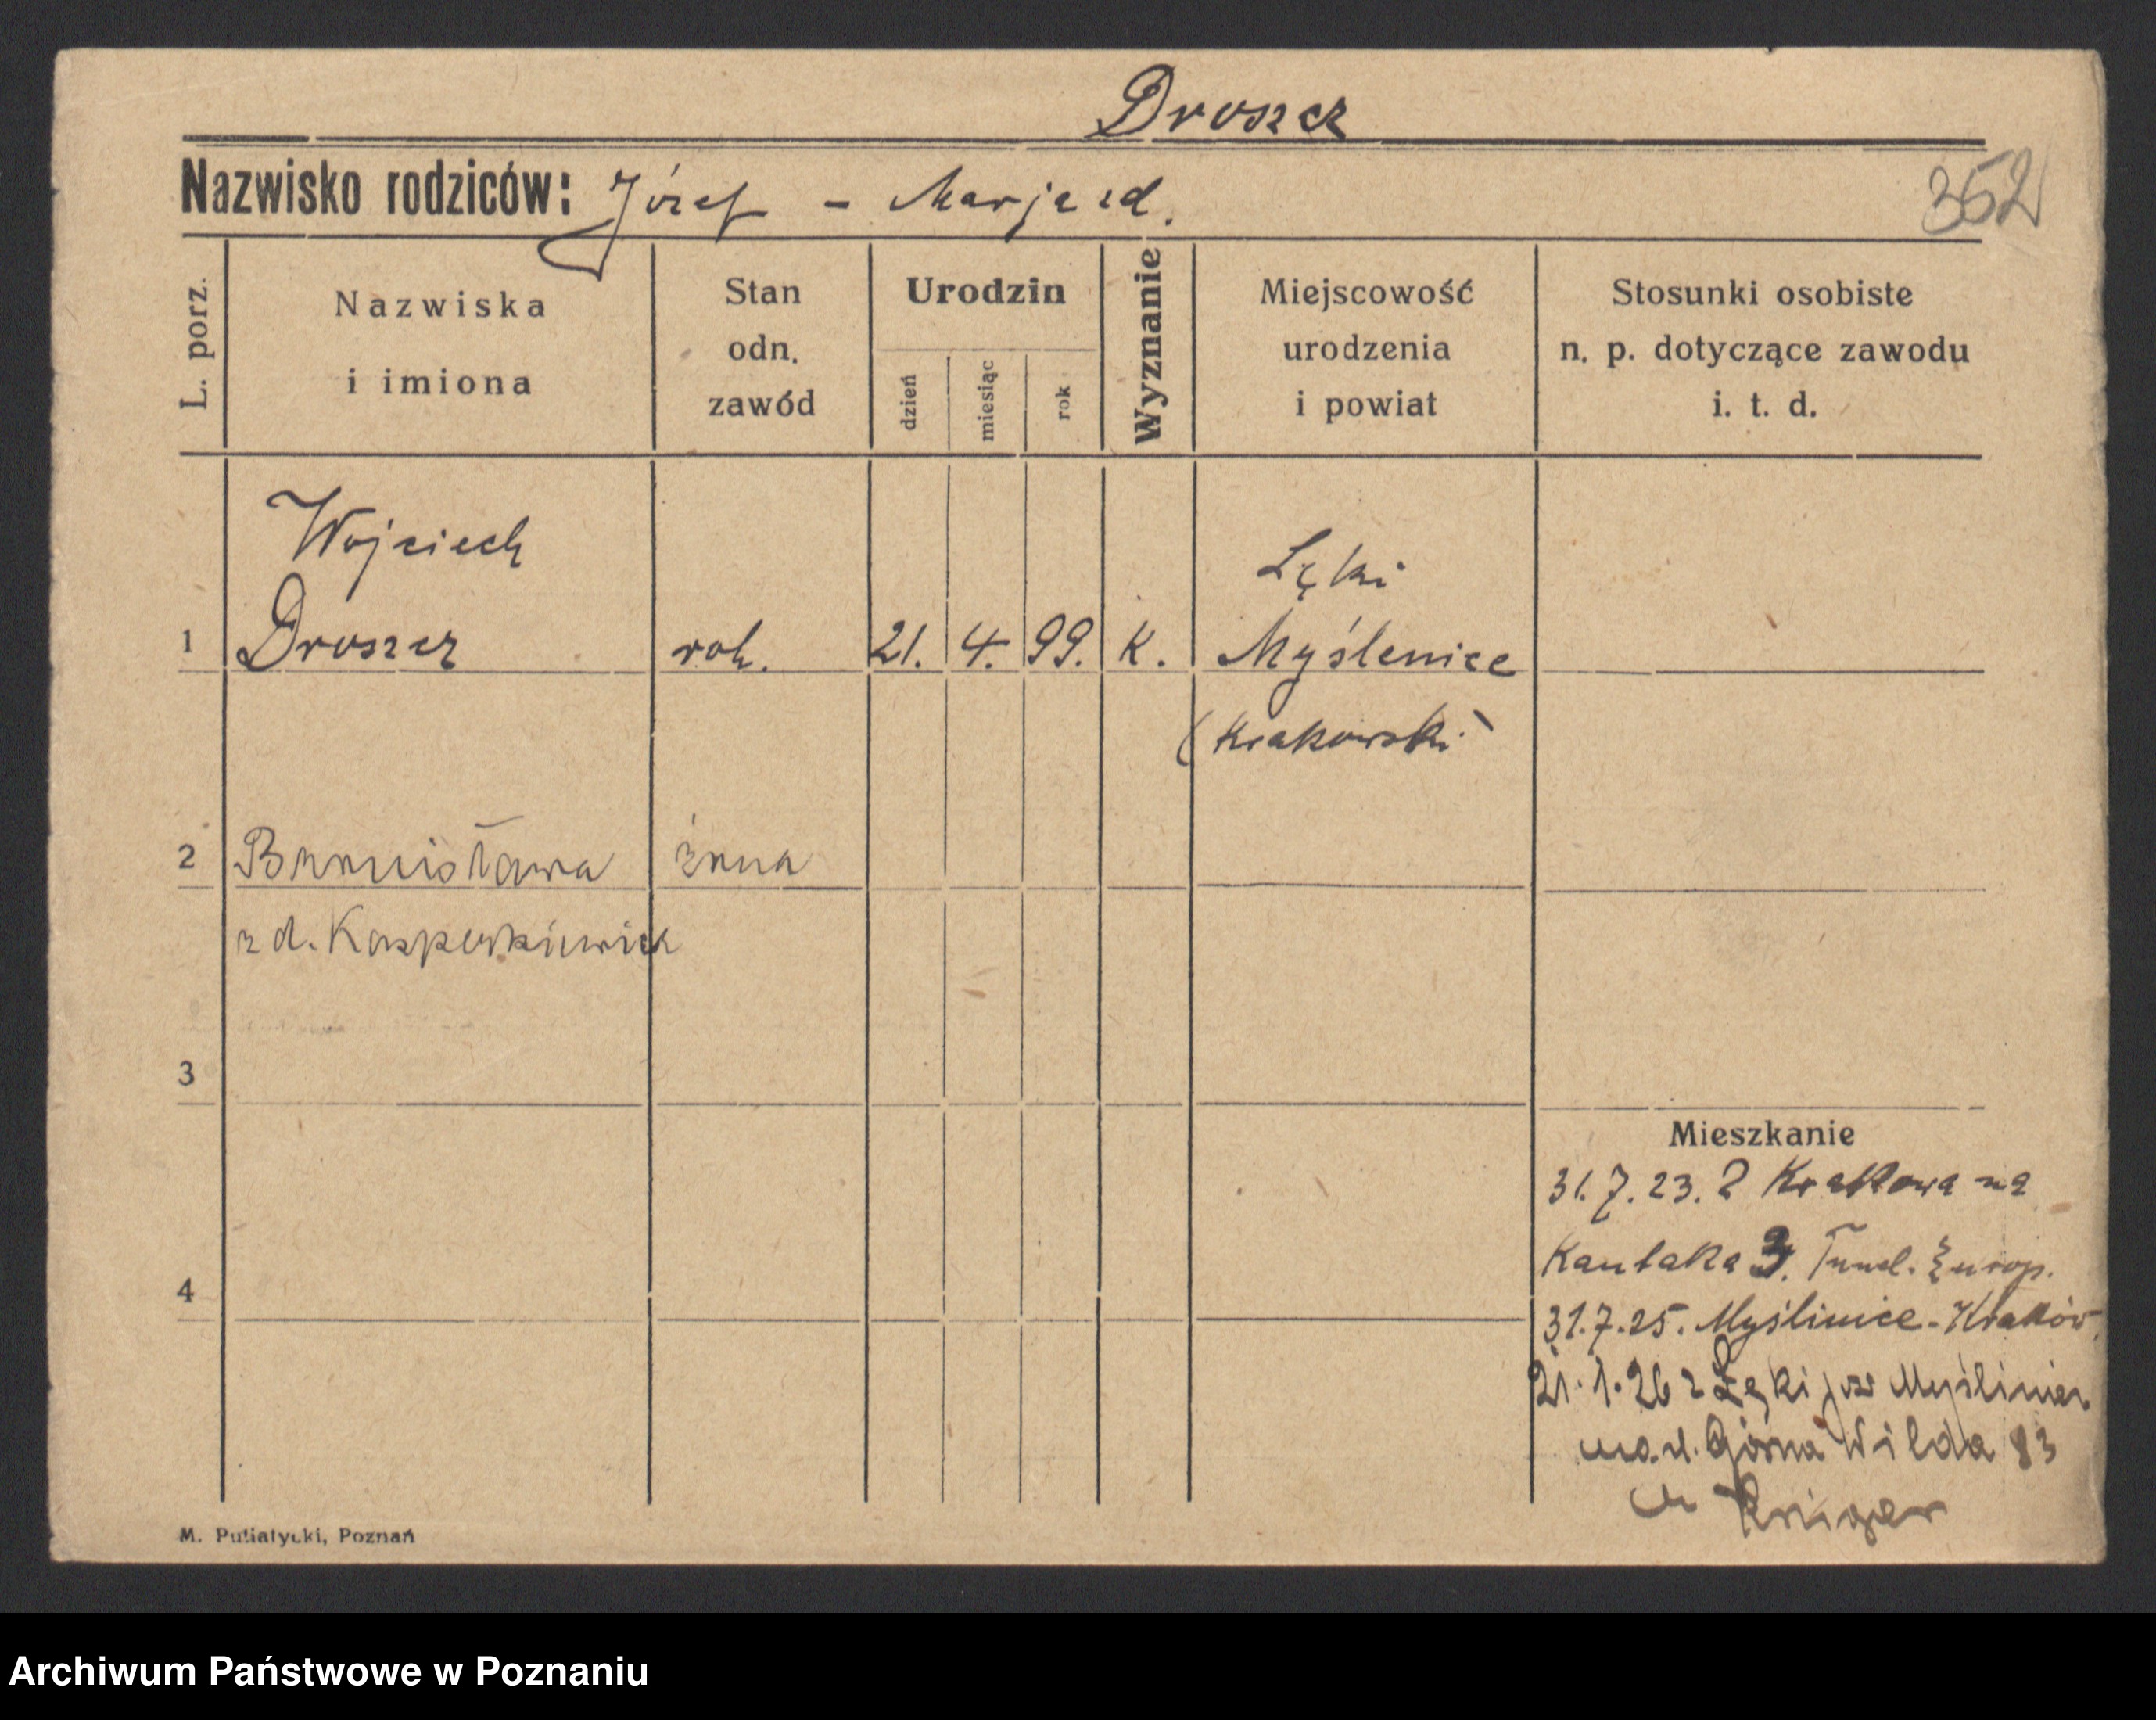 Droszcz
Nazwisko rodziców: Józef - Marja zd.
352
L. porz.
Nazwiska
i imiona
Stan
odn.
zawód
Urodzin
dzień
miesiąc
rok
Wyznanie
Miejscowość
urodzenia
i powiat
Stosunki osobiste
n. p. dotyczące zawodu
i. t. d.
Wojciech
Łęki
1 Droszcz rob. 21. 4. 99. K. Myślenice
(Krakowski)
2 Bronisława żona
z d. Kasperkiewicz
3
Mieszkanie
31.7.23. Z Krakowa na
Kantaka 3. Europ.
4
31.7.25. Myślinice - Kraków
21.1.26 z Łęki Myślinice
Górna Wilda 83
Krüger
M. Putiatycki, Poznań
Archiwum Państwowe w Poznaniu